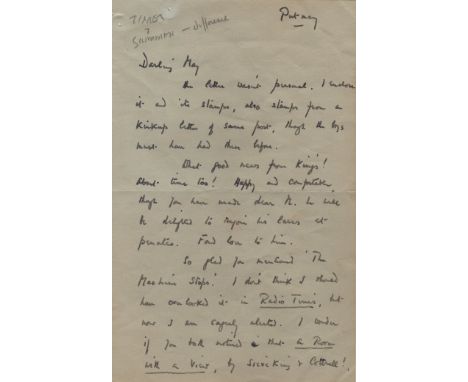 TIMES
?
SNOWMAN — difference
Putney
Darling May
the letter wasn't personal. I enclose
it and its stamps, also stamps from a
letter of same post, though the boys
must have had these before.
What good news from Kings!
About time too! Happy and comfortable
though you have made dear M. he will
be delighted to rejoin his lares et
penates. Fond love to him.
So glad you mentioned 'The
Machine Stops'! I don't think I should
have overlooked it in Radio Times, but
now I am eagerly alerted. I wonder
if you both noticed that a Room
with a View, by & Cottrell!